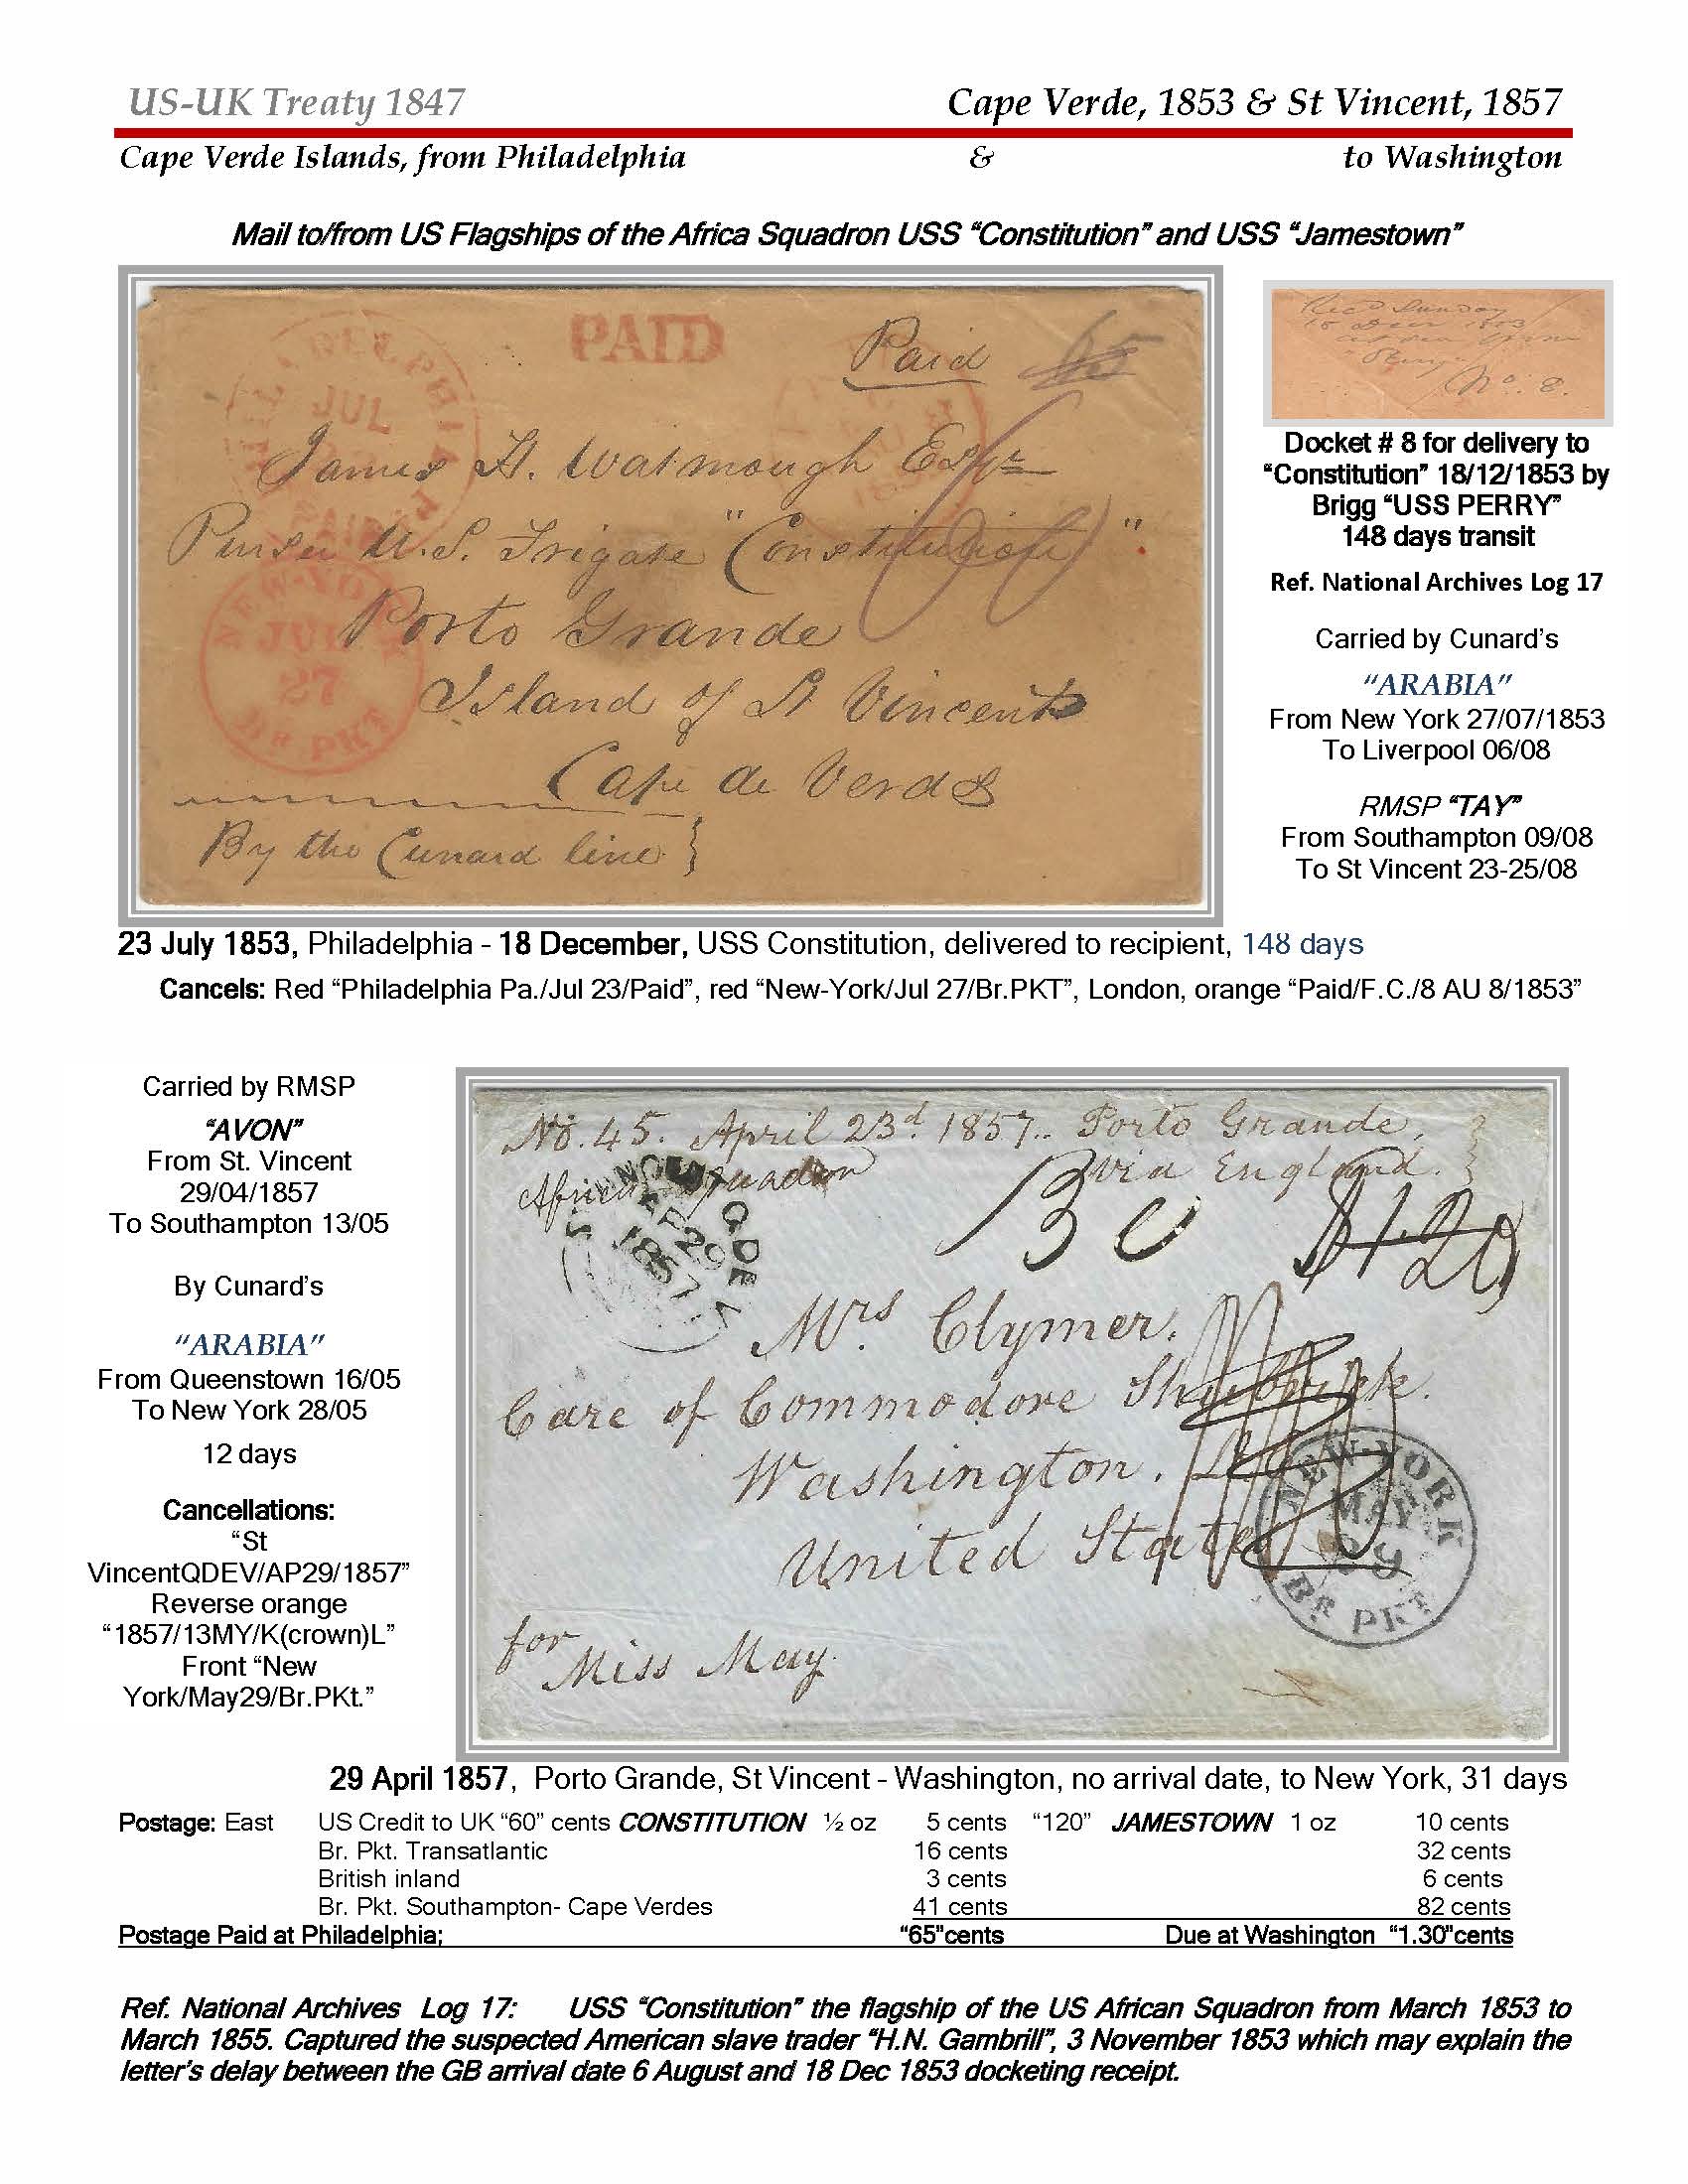 US-UK Treaty 1847 Cape Verde, 1853 & St Vincent, 1857
Cape Verde Islands, from Philadelphia & to Washington
Mail to/from US Flagships of the Africa Squadron USS “Constitution” and USS “Jamestown”
PHILADELPHIA
JUL
PAID
Paid 65
James H. Watmough Esqr
Purser U.S. Frigate "Constitution"
Porto Grande
Island of St Vincents
Cape de Verds
By the Cunard line
NEW-YORK
JUL
27
BR. PKT
60
Recd Sunday
18 Decr 1853
No. 8.
Docket # 8 for delivery to
“Constitution” 18/12/1853 by
Brigg “USS PERRY”
148 days transit
Ref. National Archives Log 17
Carried by Cunard’s
“ARABIA”
From New York 27/07/1853
To Liverpool 06/08
RMSP “TAY”
From Southampton 09/08
To St Vincent 23-25/08
23 July 1853, Philadelphia - 18 December, USS Constitution, delivered to recipient, 148 days
Cancels: Red “Philadelphia Pa./Jul 23/Paid”, red “New-York/Jul 27/Br.PKT”, London, orange “Paid/F.C./8 AU 8/1853”
Carried by RMSP
“AVON”
From St. Vincent
29/04/1857
To Southampton 13/05
By Cunard’s
“ARABIA”
From Queenstown 16/05
To New York 28/05
12 days
Cancellations:
“St
VincentQDEV/AP29/1857”
Reverse orange
“1857/13MY/K(crown)L”
Front “New
York/May29/Br.PKt.”
No. 45. April 23d. 1857. Porto Grande,
Africa Squadron via England.
AP 29
1857
$1.20
Mrs Clymer.
Care of Commodore Shubrick.
Washington.
United States
for
Miss May.
NEW-YORK
MAY
29
BR. PKT.
29 April 1857, Porto Grande, St Vincent - Washington, no arrival date, to New York, 31 days
Postage: East US Credit to UK “60” cents CONSTITUTION ½ oz 5 cents “120” JAMESTOWN 1 oz 10 cents
Br. Pkt. Transatlantic 16 cents 32 cents
British inland 3 cents 6 cents
Br. Pkt. Southampton- Cape Verdes 41 cents 82 cents
Postage Paid at Philadelphia; “65”cents Due at Washington “1.30”cents
Ref. National Archives Log 17: USS “Constitution” the flagship of the US African Squadron from March 1853 to
March 1855. Captured the suspected American slave trader “H.N. Gambrill”, 3 November 1853 which may explain the
letter’s delay between the GB arrival date 6 August and 18 Dec 1853 docketing receipt.